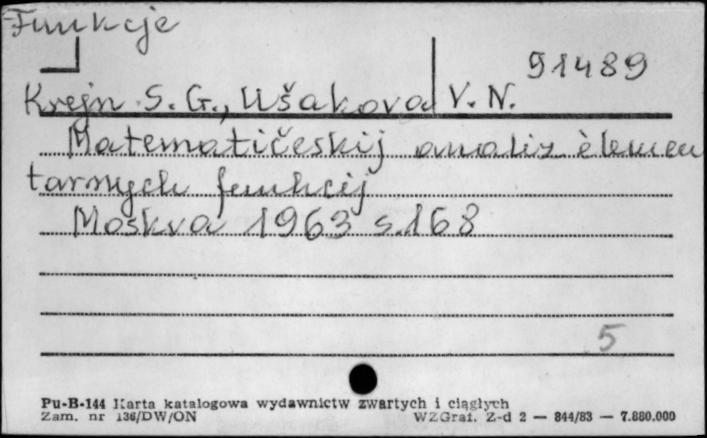 Funkcje
91489
Krejn S. G., Ušakova V. N.
Matematičeskij analiz èlemen
tarnych funkcij
Moskva 1963 s. 168
5
Pu-B-144 Karta katalogowa wydawnictw zwartych i ciągłych
Zam. nr 136/DW/ON WZGraf. Z-d 2 — 844/83 — 7.880.000